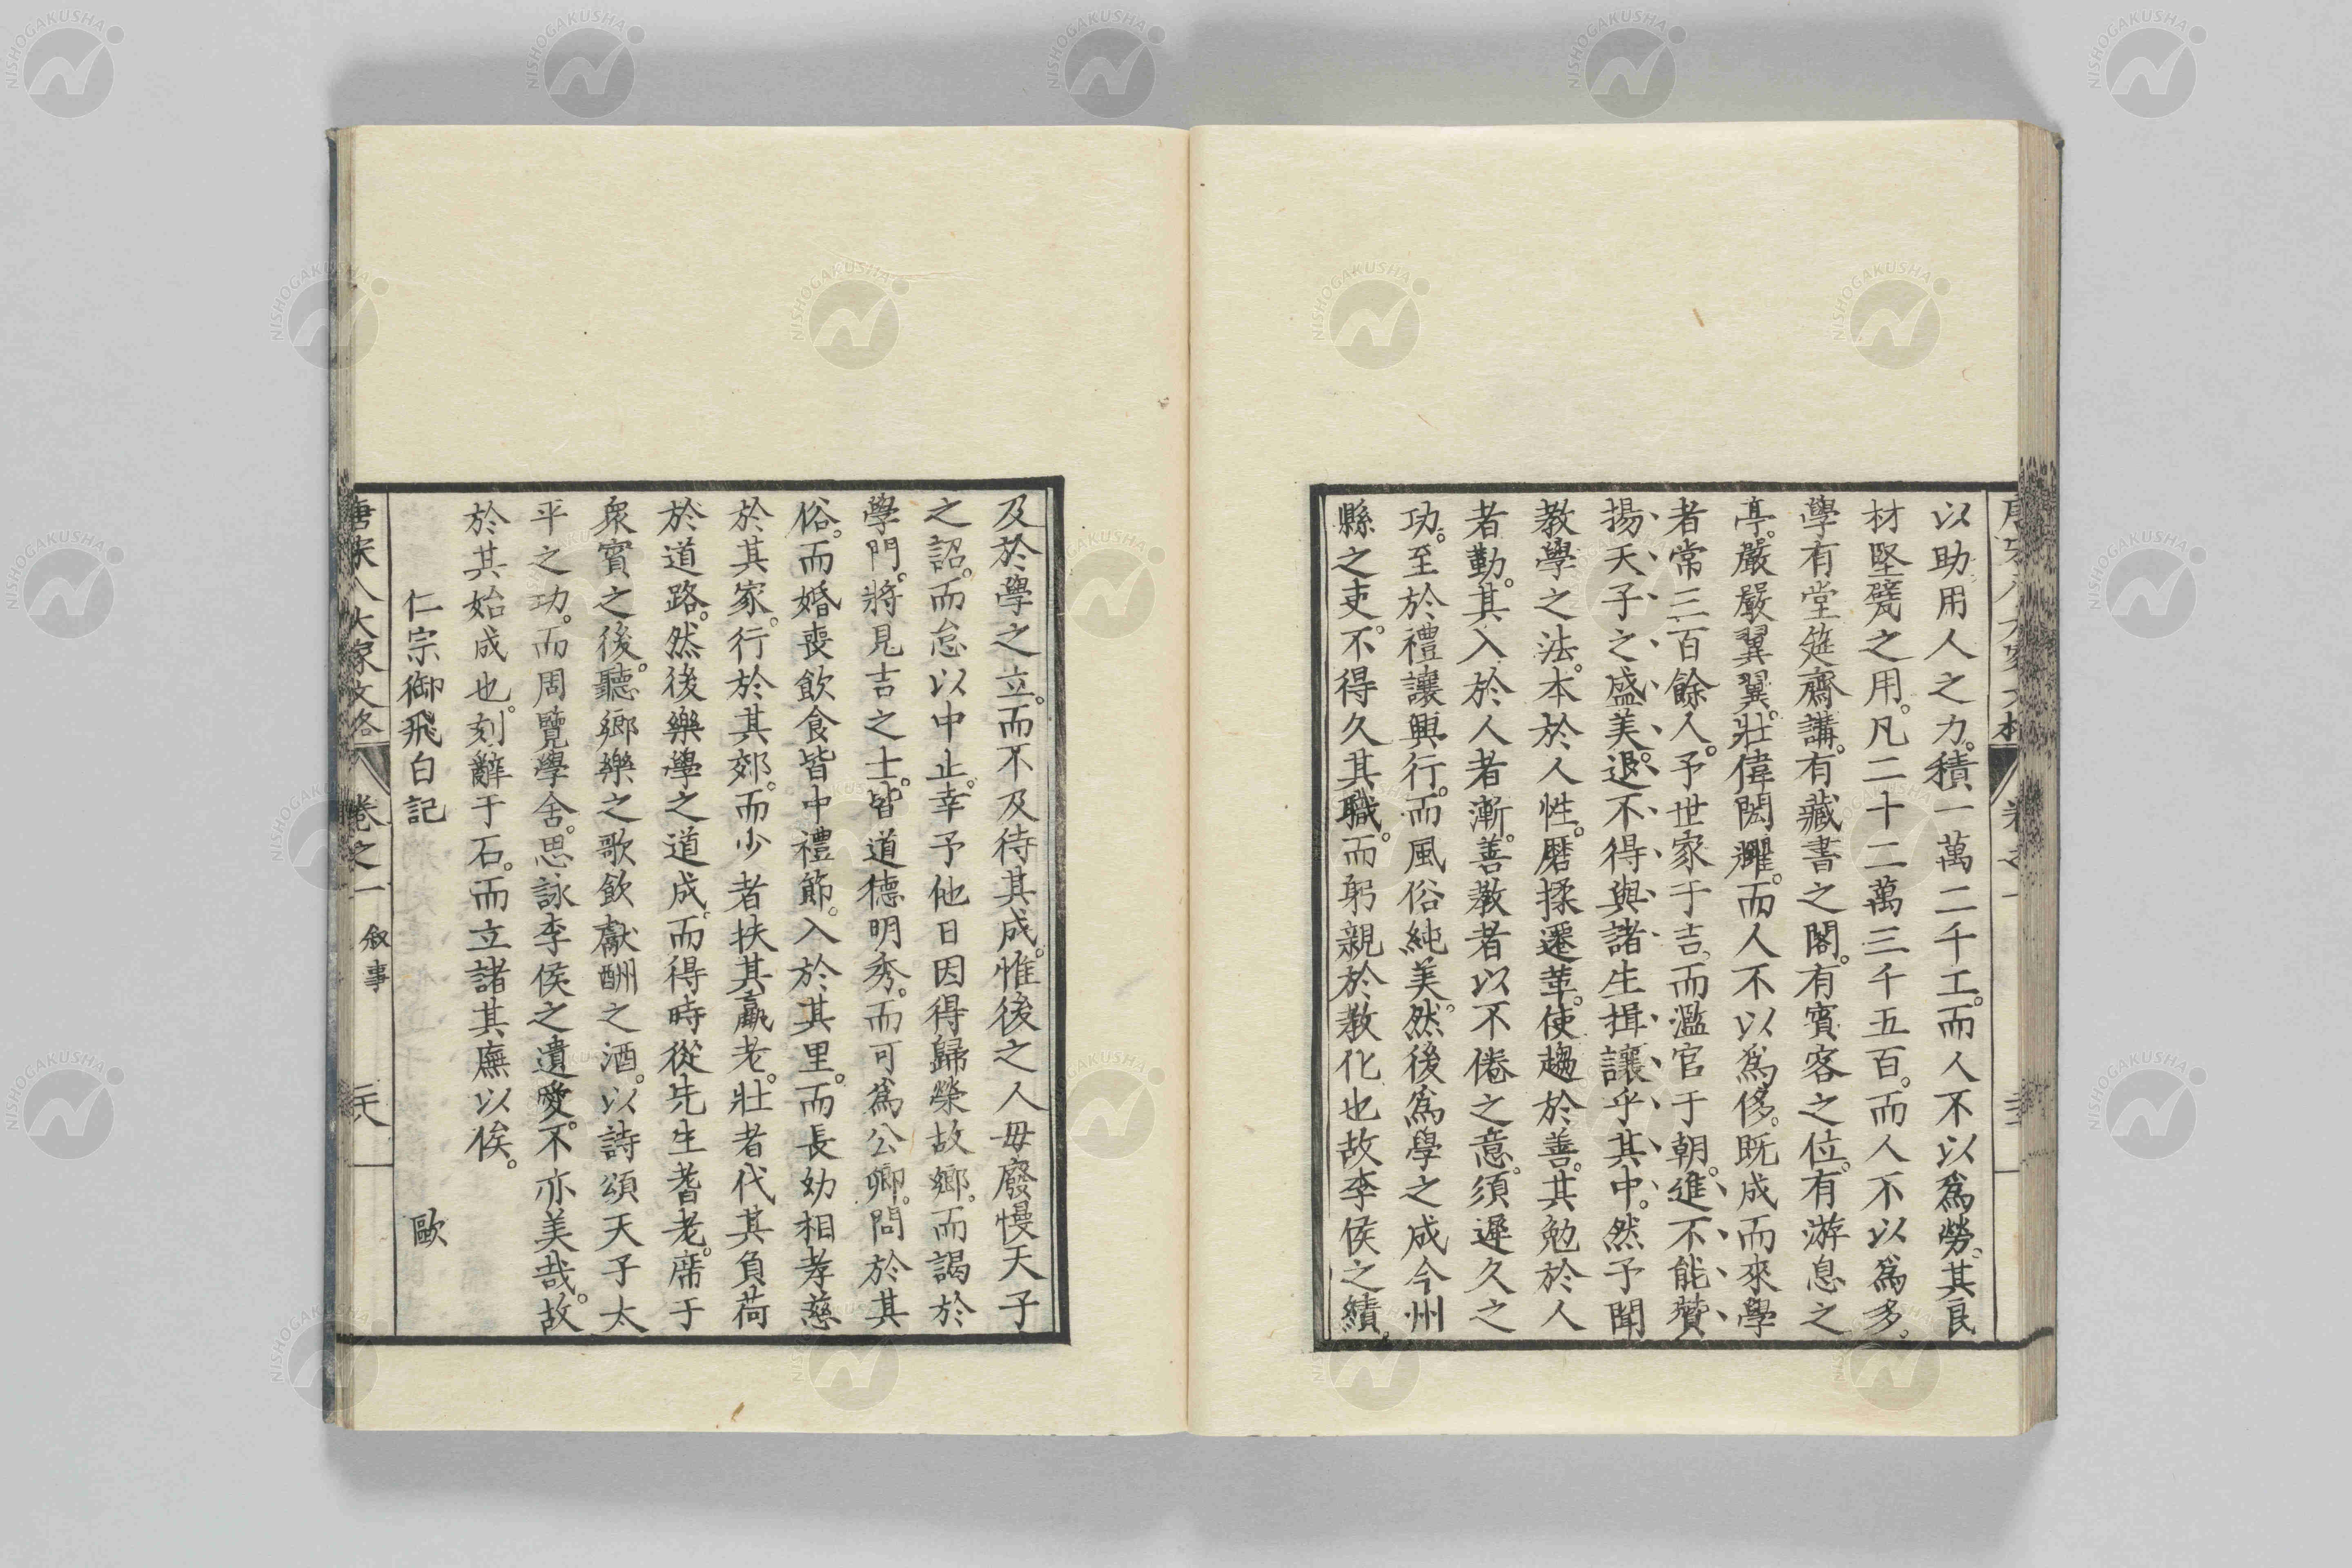 以助用人之力。積一萬二千工。而人不以爲勞。其良
材堅甓之用。凡二十二萬三千五百。而人不以爲多。
學有堂筵齋講。有藏書之閣。有賓客之位。有游息之
亭。嚴嚴翼翼。壯偉閎耀。而人不以爲侈。既成而來學
者常三百餘人。予世家于吉。而濫官于朝。進不能贊
揚天子之盛美。退不得與諸生揖讓乎其中。然予聞
教學之法。本於人性。磨揉遷革。使趨於善。其勉於人
者勤。其入於人者漸。善教者以不倦之意。須遲久之
功。至於禮讓興行。而風俗純美。然後爲學之成今州
縣之吏。不得久其職。而躬親於教化也故李侯之績。
及於學之立。而不及待其成。惟後之人毋廢慢天子
之詔。而怠以中止。幸予他日因得歸榮故鄉。而謁於
學門。將見吉之士。皆道德明秀。而可爲公卿。問於其
俗。而婚喪飲食皆中禮節。入於其里。而長幼相孝慈
於其家。行於其郊。而少者扶其羸老。壯者代其負荷
於道路。然後樂學之道成。而得時從先生耆老。席于
衆賓之後。聽鄉樂之歌飲獻酬之酒。以詩頌天子太
平之功。而周覽學舍。思詠李侯之遺愛。不亦美哉。故
於其始成也。刻辭于石。而立諸其廡以俟。
仁宗御飛白記 歐
唐宋八大家文格 卷之一 叙事